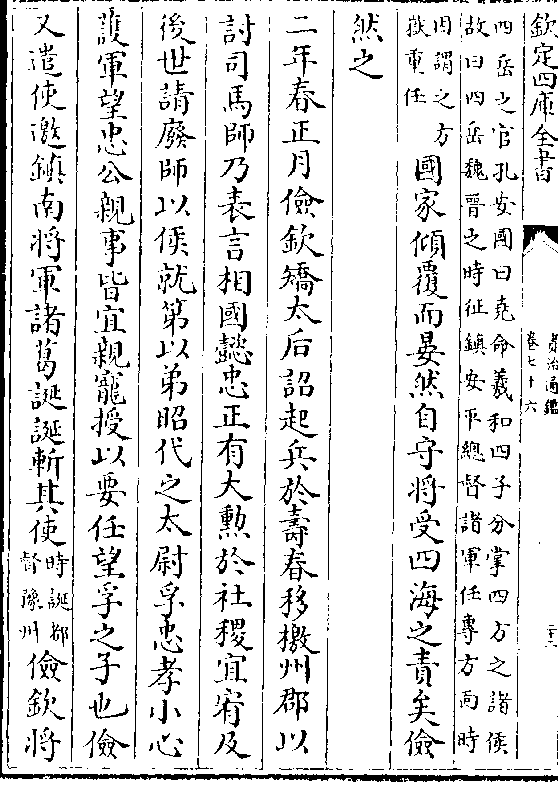 欽定四庫全書
資治通鑑
卷七十六
四岳之官孔安國曰堯命羲和四子分掌四方之諸侯
故曰四岳魏晉之時征鎮安平總督諸軍任專方面時
因謂之方
嶽重任
國家傾覆而晏然自守將受四海之責矣儉
然之
二年春正月儉欽矯太后詔起兵於壽春移檄州郡以
討司馬師乃表言相國懿忠正有大勲於社稷宜宥及
後世請廢師以侯就第以弟昭代之太尉孚忠孝小心
護軍望忠公親事皆宜親寵授以要任望孚之子也儉
又遣使邀鎮南將軍諸葛誕誕斬其使
時誕都
督豫州
儉欽將